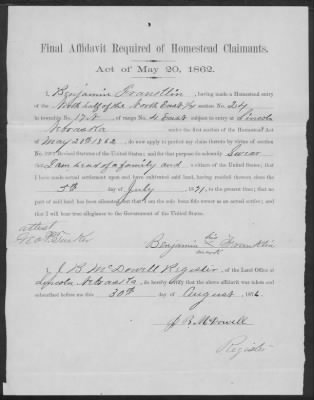 Final Affidavit Required of Homestead Claimants.
Act of May 20, 1862.
I Benjamin Franklin, having made a Homestead entry
of the North half of the North East 1/4 section No. 24
in township 17 N, of range No. 4 East subject to entry at Lincoln
Nebraska under the first section of the Homestead Act
of May 20th 1862, do now apply to perfect my claim thereto by virtue of section
No. 2291 Revised Statutes of the United States; and for that purpose do solemnly Swear
that I am head of a family and a citizen of the United States; that
I have made actual settlement upon and have cultivated said land, having resided thereon since the
5th day of July 1871, to the present time; that no
part of said land has been alienated, but that I am the sole bona fide owner as an actual settler; and
that I will bear true allegiance to the Government of the United States.
attest
Benjamin his X mark Franklin
I, J B McDowell Register, of the Land Office at
Lincoln Nebraska, do hereby certify that the above affidavit was taken and
subscribed before me this 30th day of August 1876.
J B McDowell
Register